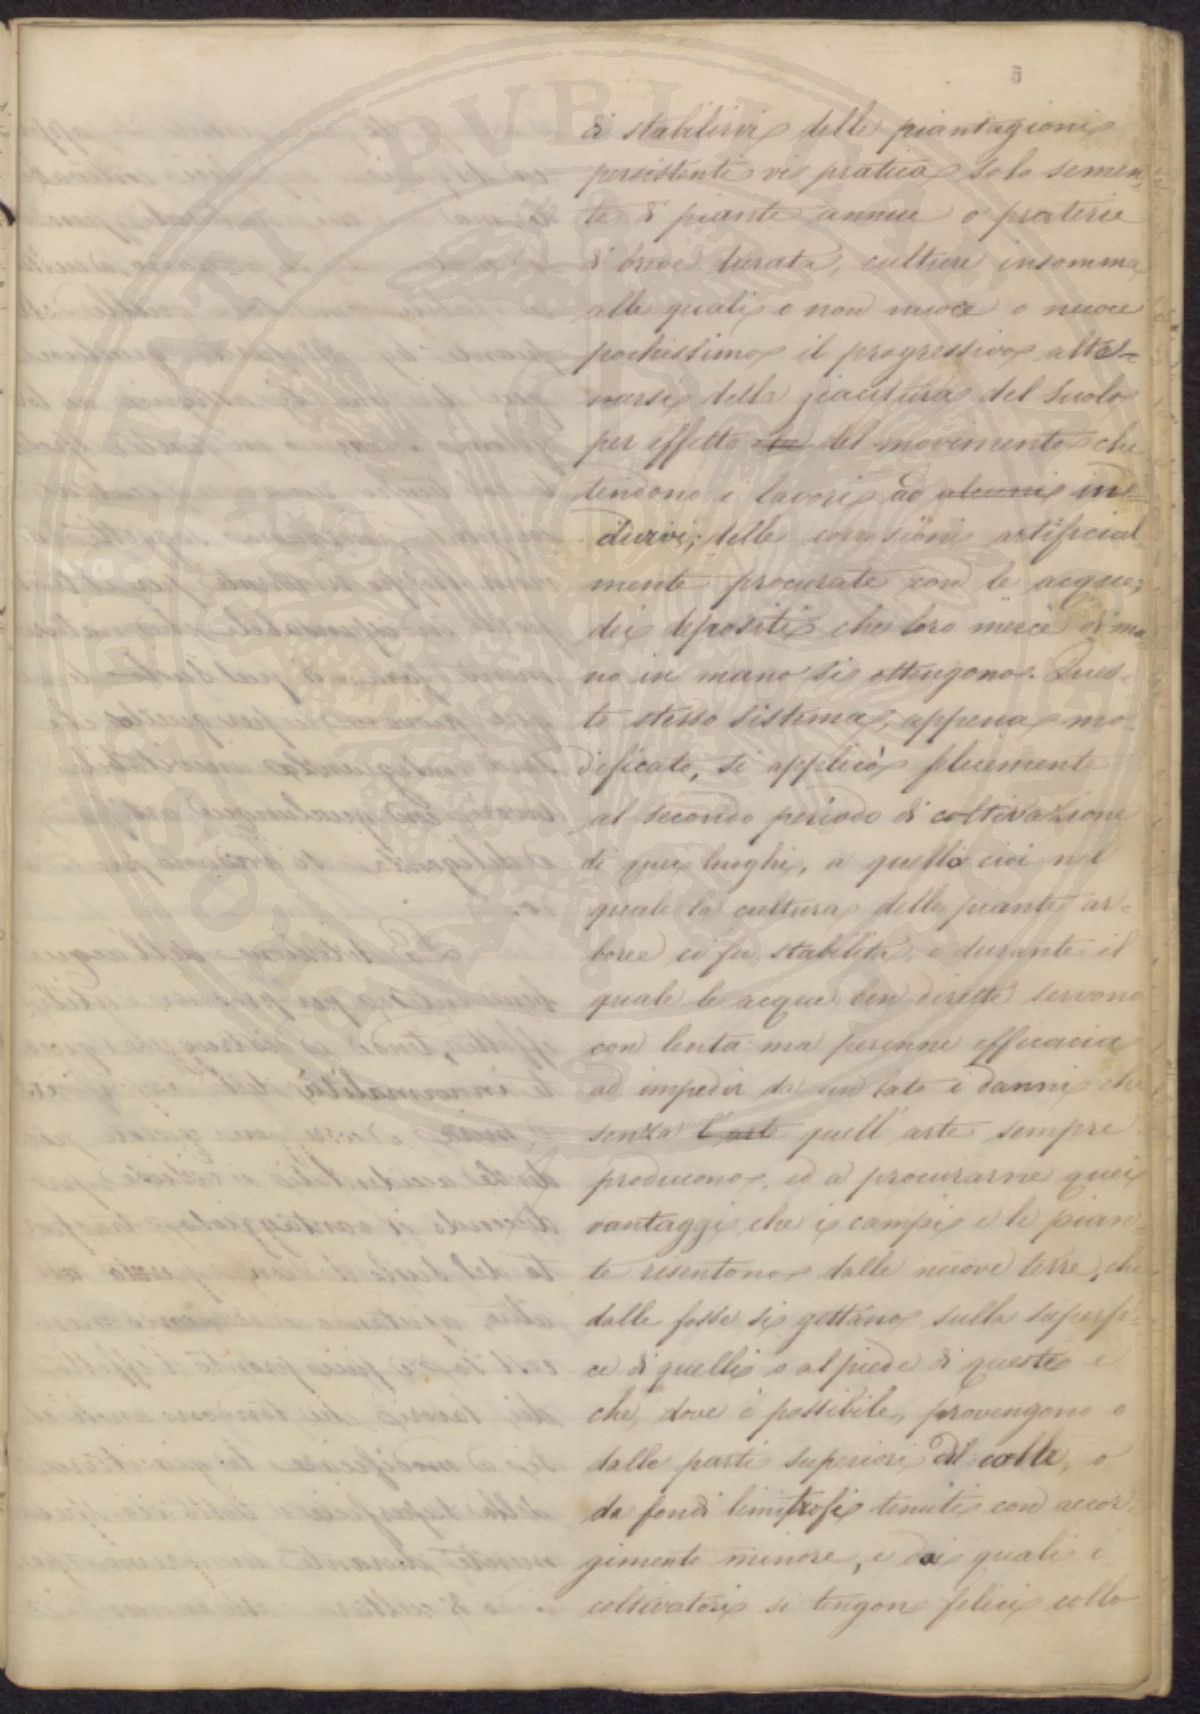 5
di stabilirvi delle piantagioni
persistenti vi pratica solo semen-
te di piante annue o praterie
di breve durata, culture insomma
alle quali o non nuoce o nuoce
pochissimo il progressivo alte-
rarsi della giacitura del suolo
per effetto che del movimento che
tendono i lavori ad alcuni in-
durvi; delle corrosioni artificial
mente procurate con le acque;
dei depositi che loro mercè di ma-
no in mano si ottengono. Ques-
to stesso sistema, appena mo-
dificato, si applicò felicemente
al secondo periodo di coltivazione
di quei luoghi, a quello cioè nel
quale la cultura delle piante ar-
boree ci fu stabilita, e durante il
quale le acque ben dirette servono
con lenta ma perenne efficacia
ad impedir da un lato i danni che
senza l'arte quell'arte sempre
producono, ed a procurarne quei
vantaggi che i campi e le pian-
te risentono dalle nuove terre, che
dalle fosse si gettano sulla superfi-
ce di quelli o al piede di queste e
che, dove è possibile, provengono o
dalle parti superiori del colle, o
da fondi limitrofi tenuti con accor
gimento minore, e dai quali i
coltivatori si tengon felici collo